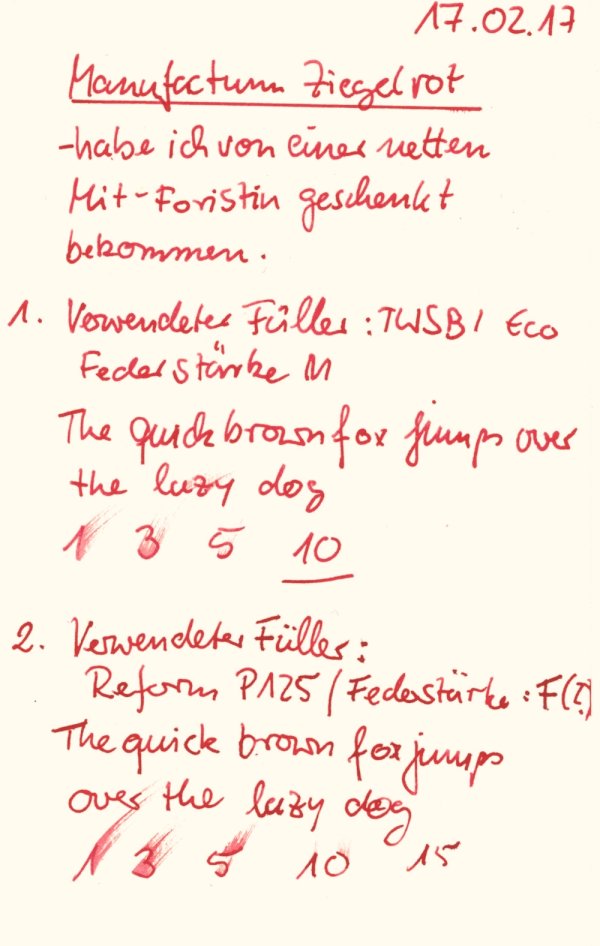 17.02.17
Manufactum Ziegelrot
-habe ich von einer netten
Mit-Foristin geschenkt
bekommen.
1. Verwendeter Füller: TWSBI Eco
Federstärke M
The quick brown fox jumps over
the lazy dog
1 3 5 10
2. Verwendeter Füller:
Reform P125 / Federstärke: F(?)
The quick brown fox jumps
over the lazy dog
1 3 5 10 15